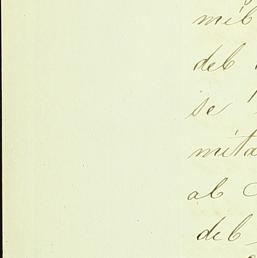 mil
del
se
mita
al
del